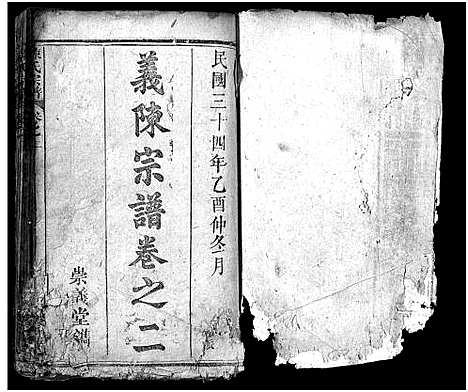 民國三十四年乙酉仲冬月
義陳宗譜卷之二
崇義堂鐫